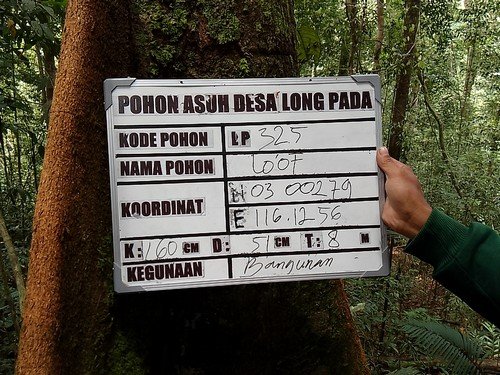 POHON ASUH DESA LONG PADA
KODE POHON LP 325
NAMA POHON Lo'of
KOORDINAT N 03 00279
E 116.12 56
K: 160 CM D: 51 CM T: 8 M
KEGUNAAN Bangunan